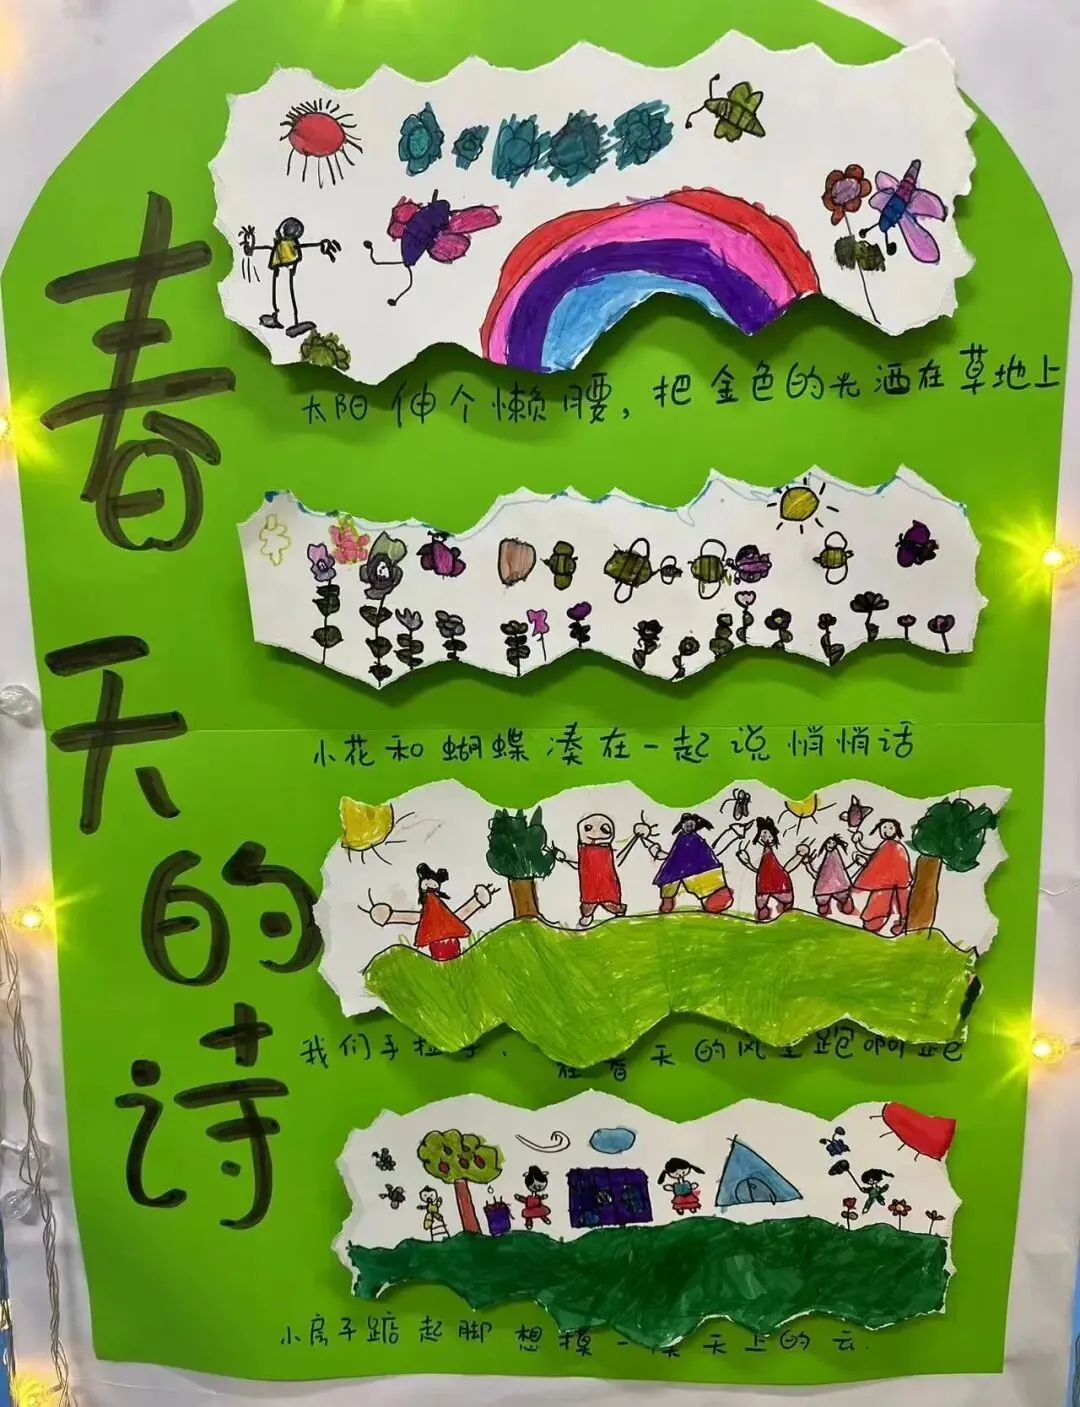 春天的诗
太阳伸个懒腰，把金色的光洒在草地上
小花和蝴蝶凑在一起说悄悄话
我们手拉手，在春天的风里跑啊跑
小房子踮起脚想摸一摸天上的云.